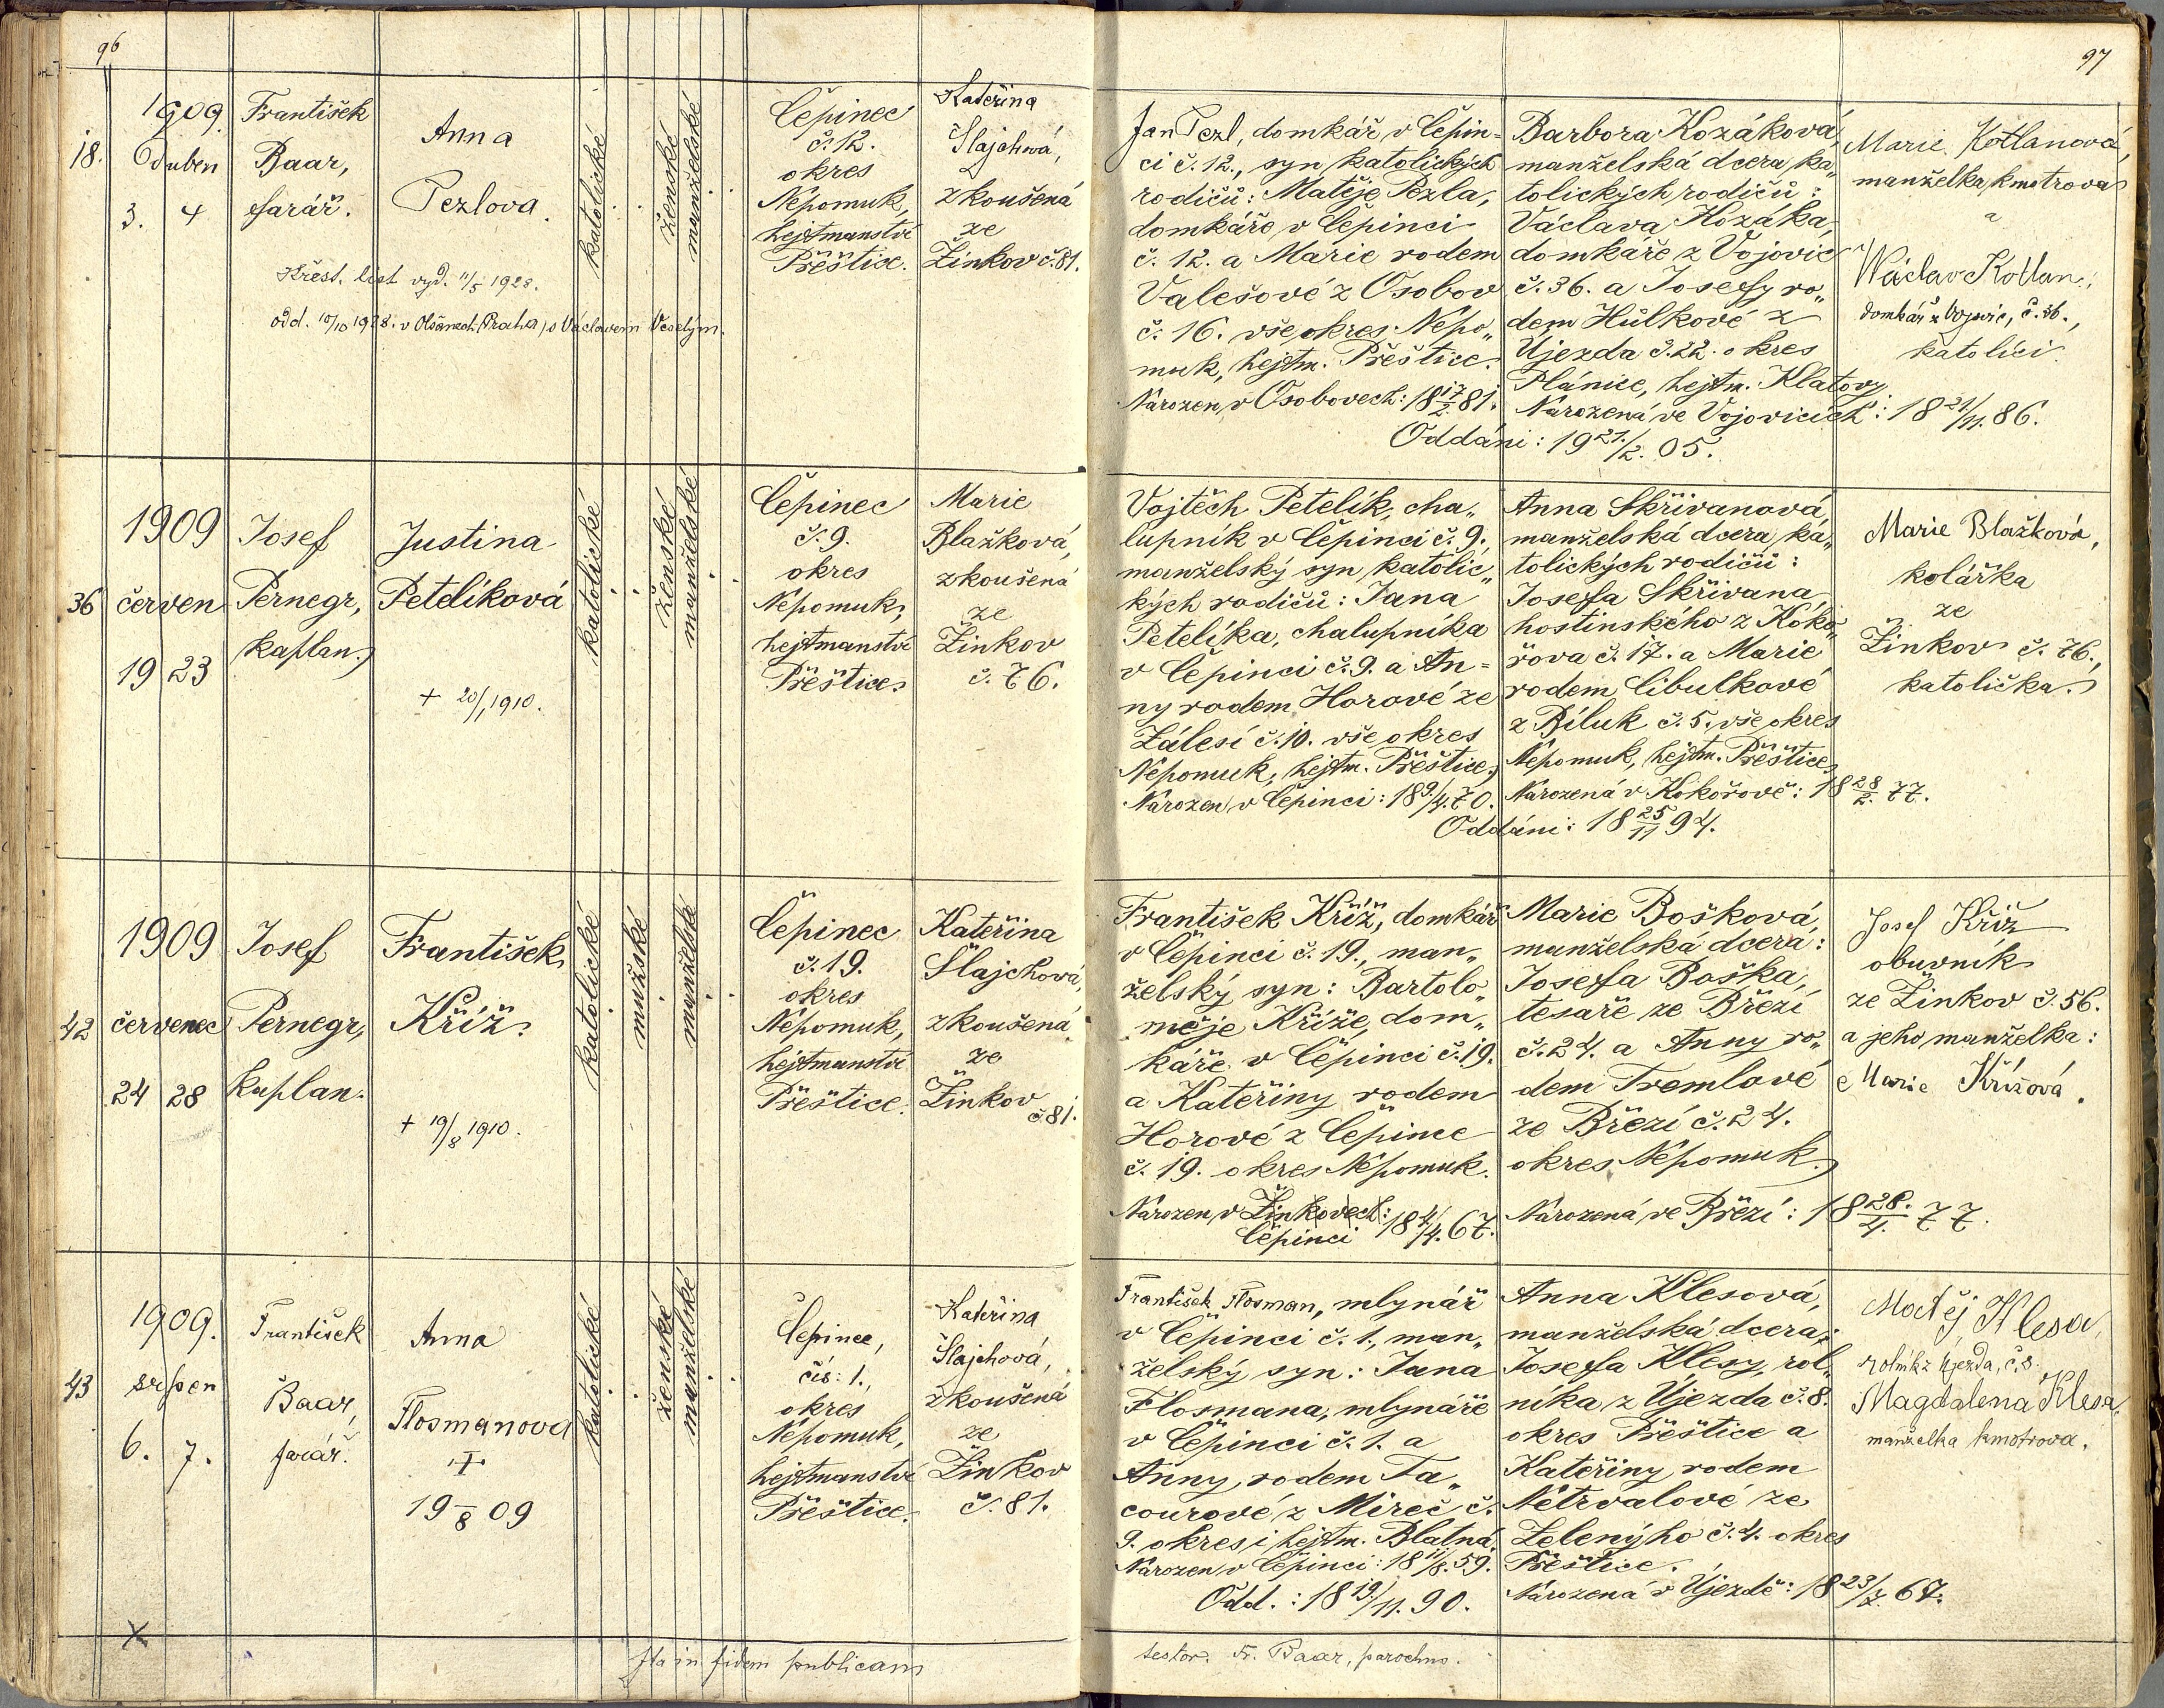 96
1909.
18. Duben
3. 4
František
Baar,
farář.
Anna
Pezlova.
Křest. list vyd. 11/5 1928.
odd. 10/10 1928. v Olšanech (Praha) s Václavem Veselým.
katolické
ženské
manželské
Čepinec
č. 12.
okres
Nepomuk,
hejtmanství
Přeštice.
Kateřina
Šlajchová,
zkoušená
ze
Žinkov č. 81.
1909
36 červen
19 23
Josef
Pernegr,
kaplan.
Justina
Petelíková
+ 20/1 1910.
katolické
ženské
manželské
Čepinec
č. 9.
okres
Nepomuk,
hejtmanství
Přeštice.
Marie
Blažková,
zkoušená
ze
Žinkov
č. 76.
1909
42 červenec
24 28
Josef
Pernegr,
kaplan.
František
Kříž.
+ 19/8 1910.
katolické
mužské
manželské
Čepinec
č. 19.
okres
Nepomuk,
hejtmanství
Přeštice.
Kateřina
Šlajchová,
zkoušená
ze
Žinkov
č. 81.
1909.
43 srpen
6. 7.
František
Baar,
farář.
Anna
Flosmanova
+
19 8 09
katolické
ženské
manželské
Čepinec,
čís: 1.,
okres
Nepomuk,
hejtmanství
Přeštice.
Kateřina
Šlajchová,
zkoušená
ze
Žinkov
č. 81.
X
Ita in fidem publicam
97
Jan Pezl, domkář v Čepin=
ci č. 12., syn katolických
rodičů: Matěje Pezla,
domkáře v Čepinci
č. 12. a Marie rodem
Valešové z Osobov
č. 16. vše okres Nepo„
muk, hejtm. Přeštice.
Narozen v Osobovech: 18 17/2. 81.
Barbora Kozáková,
manželská dcera ka„
tolických rodičů:
Václava Kozáka,
domkáře z Vojovic
č. 36. a Josefy ro„
dem Hůlkové z
Újezda č. 22. okres
Plánice, hejtm. Klatovy
Narozená ve Vojovicích: 18 21/11. 86.
Oddáni: 19 21./2. 05.
Marie Kotlanová,
manželka kmotrova
a
Wáclav Kotlan,
domkář z Vojovic, č. 36.,
katolíci.
Vojtěch Petelík, cha„
lupník v Čepinci č. 9.,
manželský syn katolic„
kých rodičů: Jana
Petelíka, chalupníka
v Čepinci č. 9. a An=
ny rodem Horové ze
Zálesí č. 10. vše okres
Nepomuk, hejtm. Přeštice.
Narozen v Čepinci: 18 9./4. 70.
Anna Skřivanová,
manželská dcera ka„
tolických rodičů:
Josefa Skřivana
hostinského z Koko„
řova č. 17. a Marie
rodem Cibulkové
z Bíluk č. 5. vše okres
Nepomuk, hejtm. Přeštice
Narozená v Kokořově: 18 28/2. 77.
Oddáni: 18 25/11 94.
Marie Blažková,
kolářka
ze
Žinkov č. 76.,
katolička.
František Kříž, domkář
v Čepinci č. 19., man„
želský syn: Bartolo„
měje Kříže, dom„
káře v Čepinci č. 19.
a Kateřiny rodem
Horové z Čepince
č. 19. okres Nepomuk.
Narozen v Žinkovech:
Čepinci 18 4/4. 67.
Marie Bošková,
manželská dcera:
Josefa Boška,
tesaře ze Březí
č. 24. a Anny ro„
dem Tremlové
ze Březí č. 24.
okres Nepomuk.
Narozená ve Březí: 18 28./4. 77.
Josef Kříž
obuvník
ze Žinkov č. 56.
a jeho manželka:
Marie Křížová.
František Flosman, mlynář
v Čepinci č. 1., man„
želský syn: Jana
Flosmana, mlynáře
v Čepinci č. 1. a
Anny, rodem Ta„
courové z Mireč č.
9. okres i hejtm. Blatná.
Narozen v Čepinci: 18 11/8. 59.
Odd.: 18 19/11. 90.
Anna Klesová,
manželská dcera:
Josefa Klesy, rol„
níka z Újezda č. 8.
okres Přeštice a
Kateřiny rodem
Netrvalové ze
Zelenýho č. 4. okres
Přeštice.
Narozená v Újezdě: 18 23/7. 67.
Matěj Klesa,
rolník z Újezda, č. 8.
Magdalena Klesa,
manželka kmotrova.
testor. Fr. Baar, parochus.